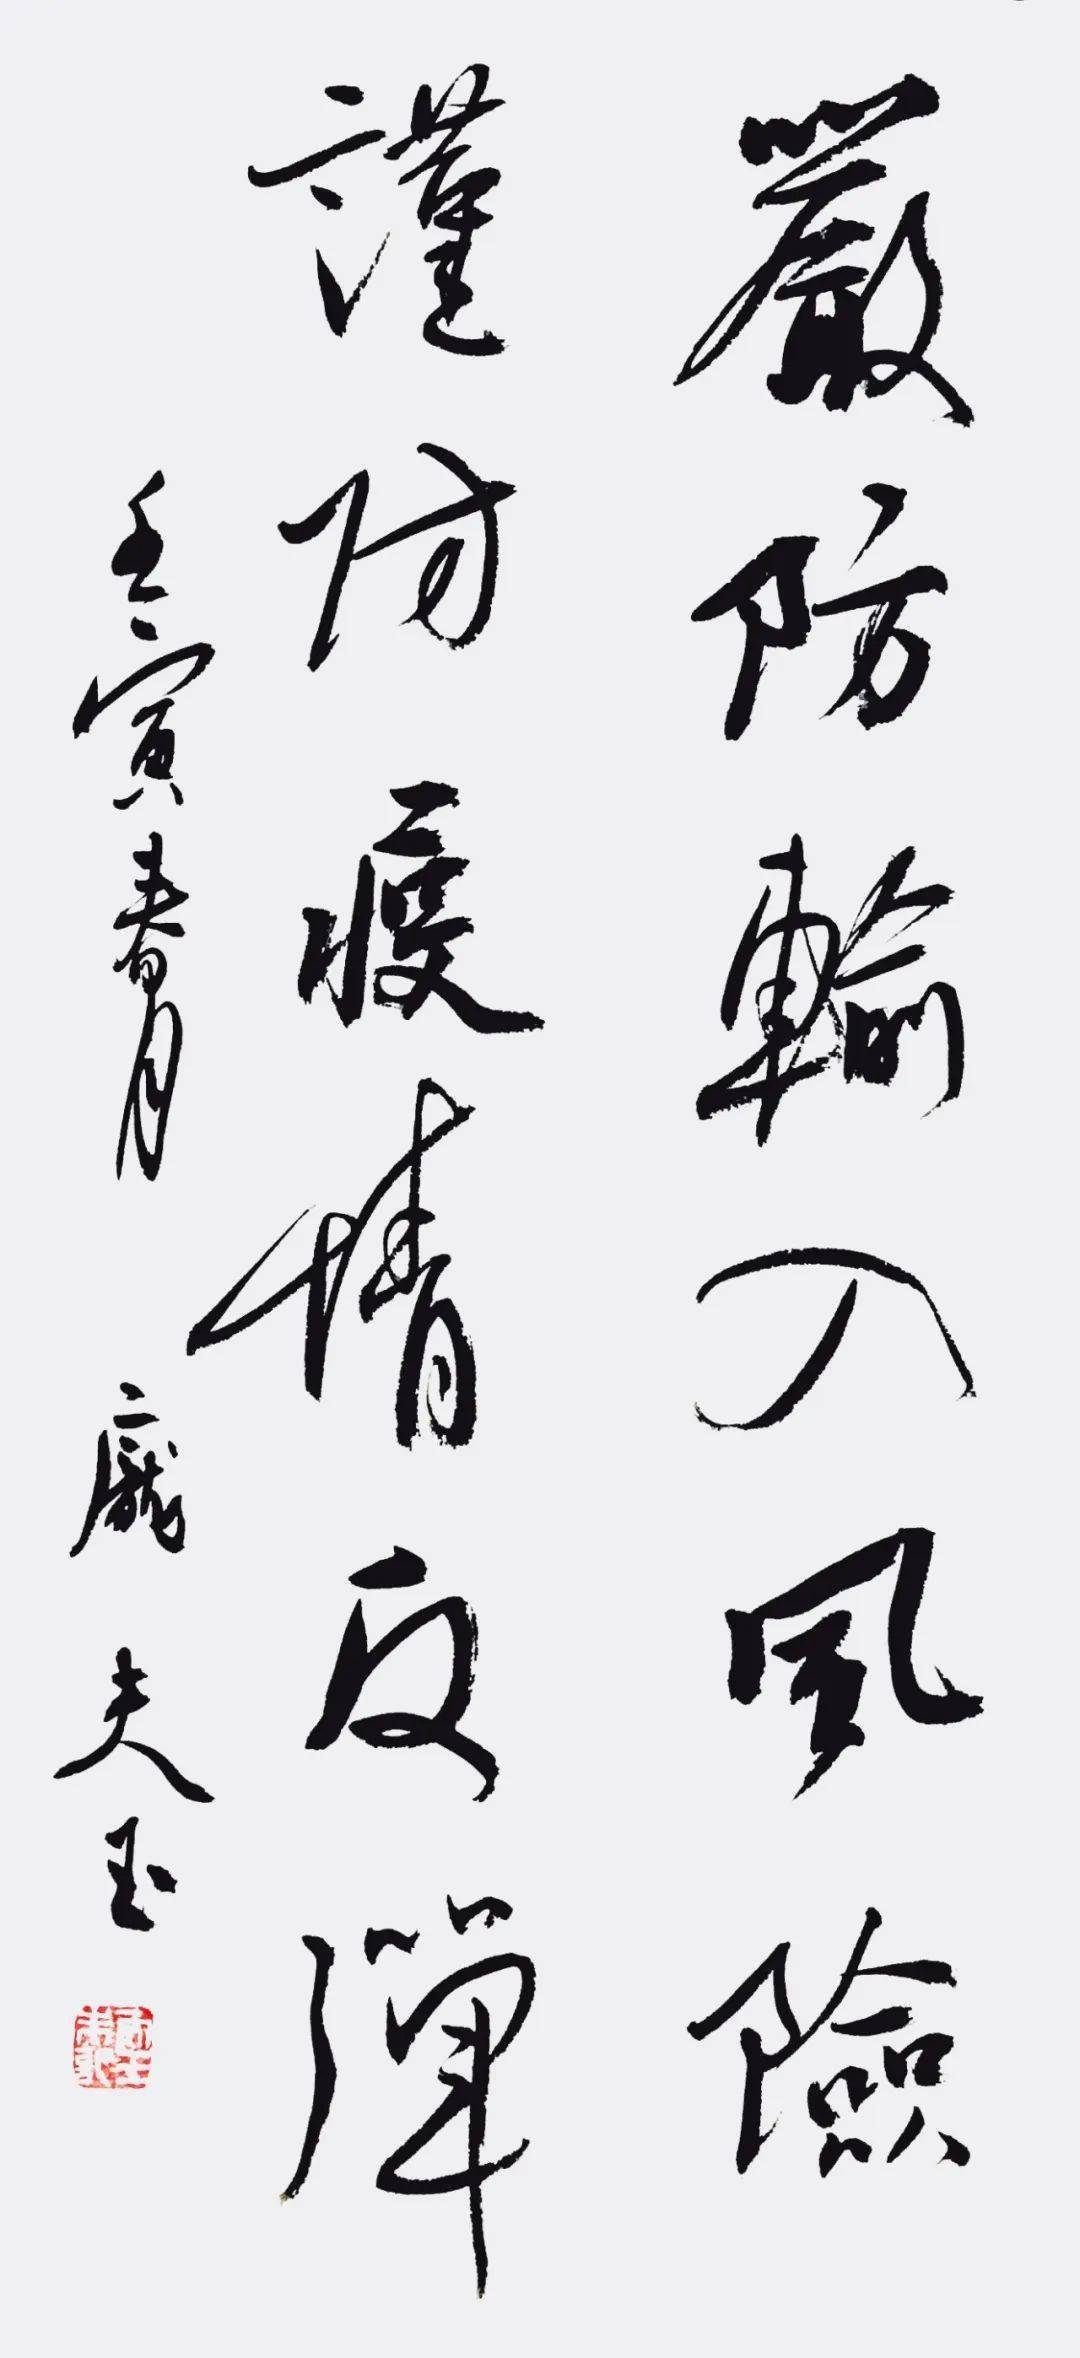 嚴防輸入風險
謹防疫情反彈
壬寅春月 龐夫玉